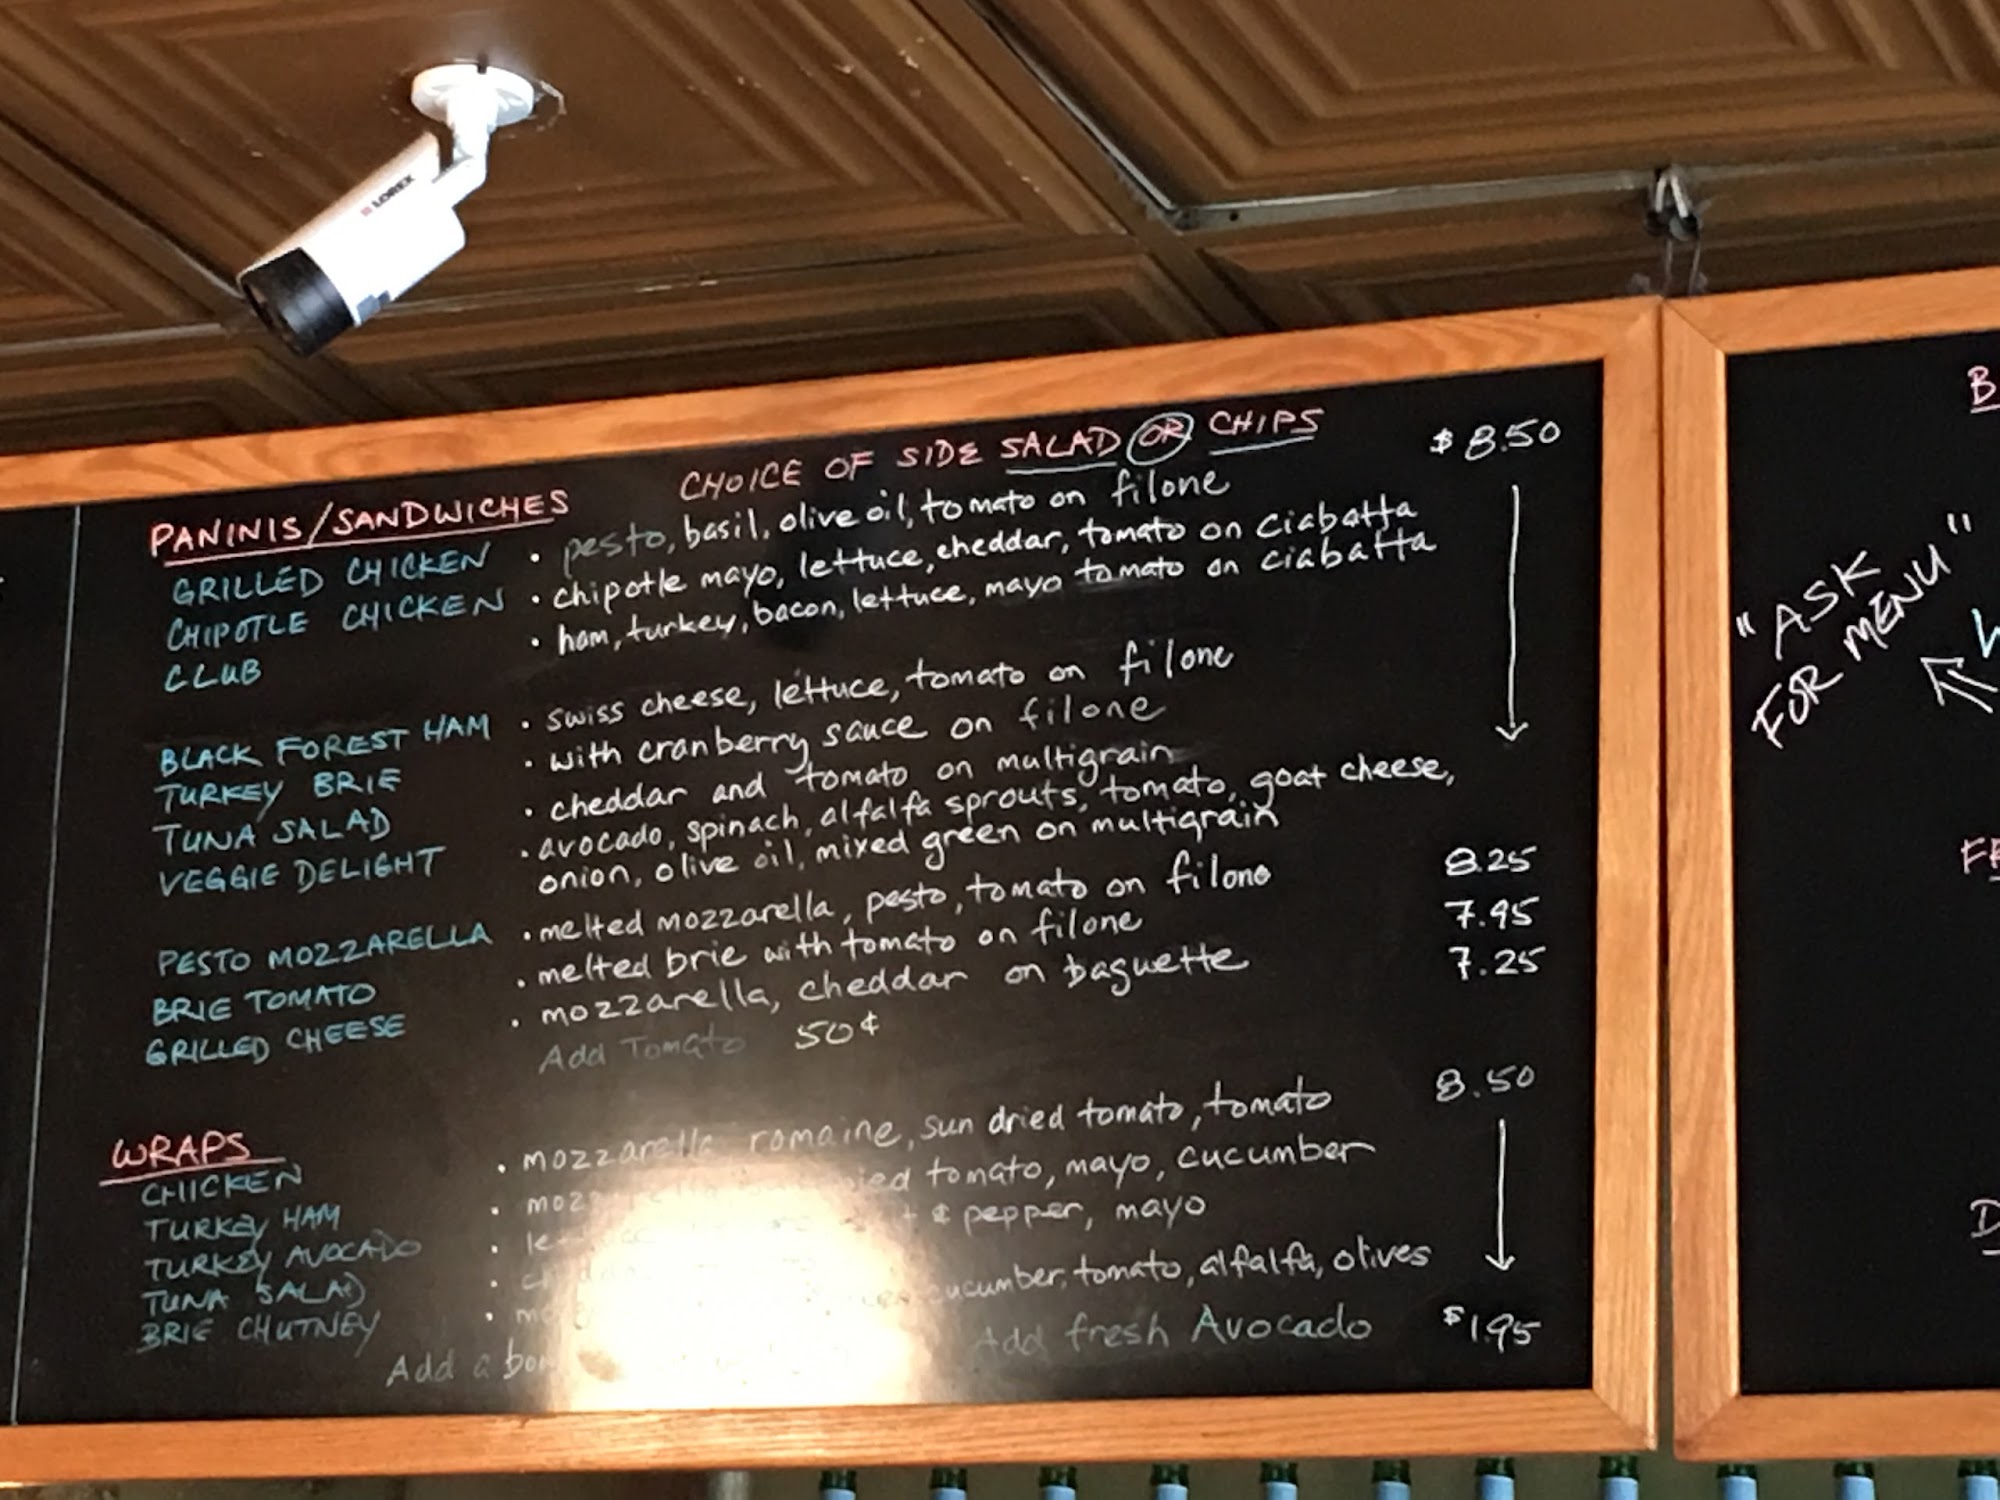 LOREX
CHOICE OF SIDE SALAD OR CHIPS $8.50
PANINIS/SANDWICHES
GRILLED CHICKEN • pesto, basil, olive oil, tomato on filone
CHIPOTLE CHICKEN • chipotle mayo, lettuce, cheddar, tomato on ciabatta
CLUB • ham, turkey, bacon, lettuce, mayo tomato on ciabatta
BLACK FOREST HAM • swiss cheese, lettuce, tomato on filone
TURKEY BRIE • with cranberry sauce on filone
TUNA SALAD • cheddar and tomato on multigrain
VEGGIE DELIGHT • avocado, spinach, alfalfa sprouts, tomato, goat cheese,
onion, olive oil, mixed green on multigrain
PESTO MOZZARELLA • melted mozzarella, pesto, tomato on filone 8.25
BRIE TOMATO • melted brie with tomato on filone 7.95
GRILLED CHEESE • mozzarella, cheddar on baguette 7.25
Add Tomato 50¢
WRAPS
CHICKEN • mozzarella romaine, sun dried tomato, tomato 8.50
TURKEY HAM • tomato, mayo, cucumber
TURKEY AVOCADO • & pepper, mayo
TUNA SALAD •
BRIE CHUTNEY • cucumber, tomato, alfalfa, olives
Add a
Add fresh Avocado $1.95
"ASK
FOR MENU"